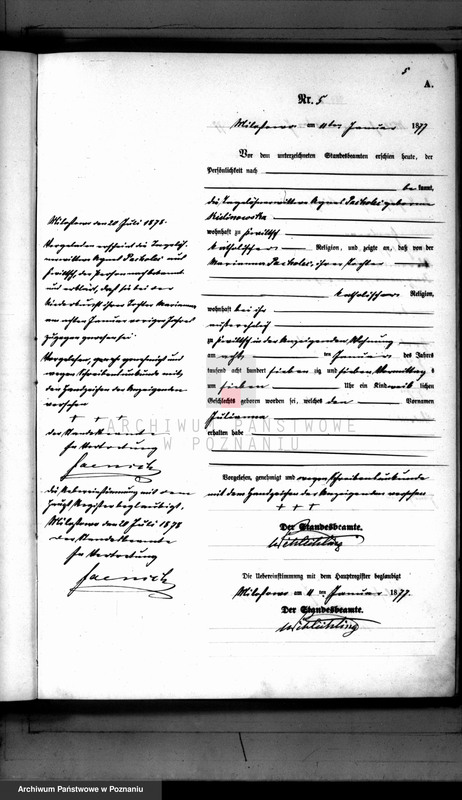 5
A.
Nr. 5
Milosowo am 11ten Januar 1877
Vor dem unterzeichneten Standesbeamten erschien heute, der
Persönlichkeit nach
bekannt,
die Tagelöhnerwittwe Agnes geborene
wohnhaft zu
katholischer Religion, und zeigte an, daß von der
Marianna ihrer Tochter
katholischer Religion,
wohnhaft bei ihr
zu in der Anzeigenden Wohnung
am acht ten Januar des Jahres
tausend acht hundert sieben zig und sieben Vormittags
um sieben Uhr ein Kind weiblichen
Geschlechts geboren worden sei, welches den Vornamen
Julianna
erhalten habe
Vorgelesen, genehmigt und wegen Schreibensunkunde
mit dem Handzeichen der Anzeigenden versehen
+ + +
Der Standesbeamte.
Die Uebereinstimmung mit dem Hauptregister beglaubigt
Milosowo am 11ten Januar 1877.
Der Standesbeamte.
Milosowo den 20 Juli 1878.
Vorgeladen erscheint die Tagelöh-
nerwittwe Agnes aus
der Person nach bekannt
und erklärt, daß sie bei der
Niederkunft ihrer Tochter Marianna
am achten Januar vorigen Jahres
zugegen gewesen sei.
Vorgelesen, genehmigt und
wegen Schreibensunkunde mit
den Handzeichen der Anzeigenden
versehen
+ + +
Der Standesbeamte
In Vertretung
Jaenisch
Die Uebereinstimmung mit dem
Hauptregister beglaubigt.
Milosowo den 20 Juli 1878
Der Standesbeamte
In Vertretung
Jaenisch
ARCHIWUM PAŃSTWOWE
W POZNANIU
Archiwum Państwowe w Poznaniu